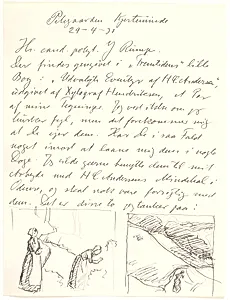 Pilegaarden Kjerteminde
29-4-31
Hr. cand. polyt. J Rump.
Der findes gengivet i "Fremtidens" lille
Bog: "Udvalgte Eventyr af H C Andersen",
udgivet af Xylograf Hendriksen, et Par
af mine Tegninger. Jeg ved ikke om jeg
husker fejl, men det forekommer mig
at De ejer dem. Har De i saa Fald
noget imod at laane mig dem i nogle
Dage. Jeg vilde gerne benytte dem til mit
Arbejde med H C Andersens Mindehal i
Odense, og skal nok være forsigtig med
dem. Det er disse to jeg tænker paa: